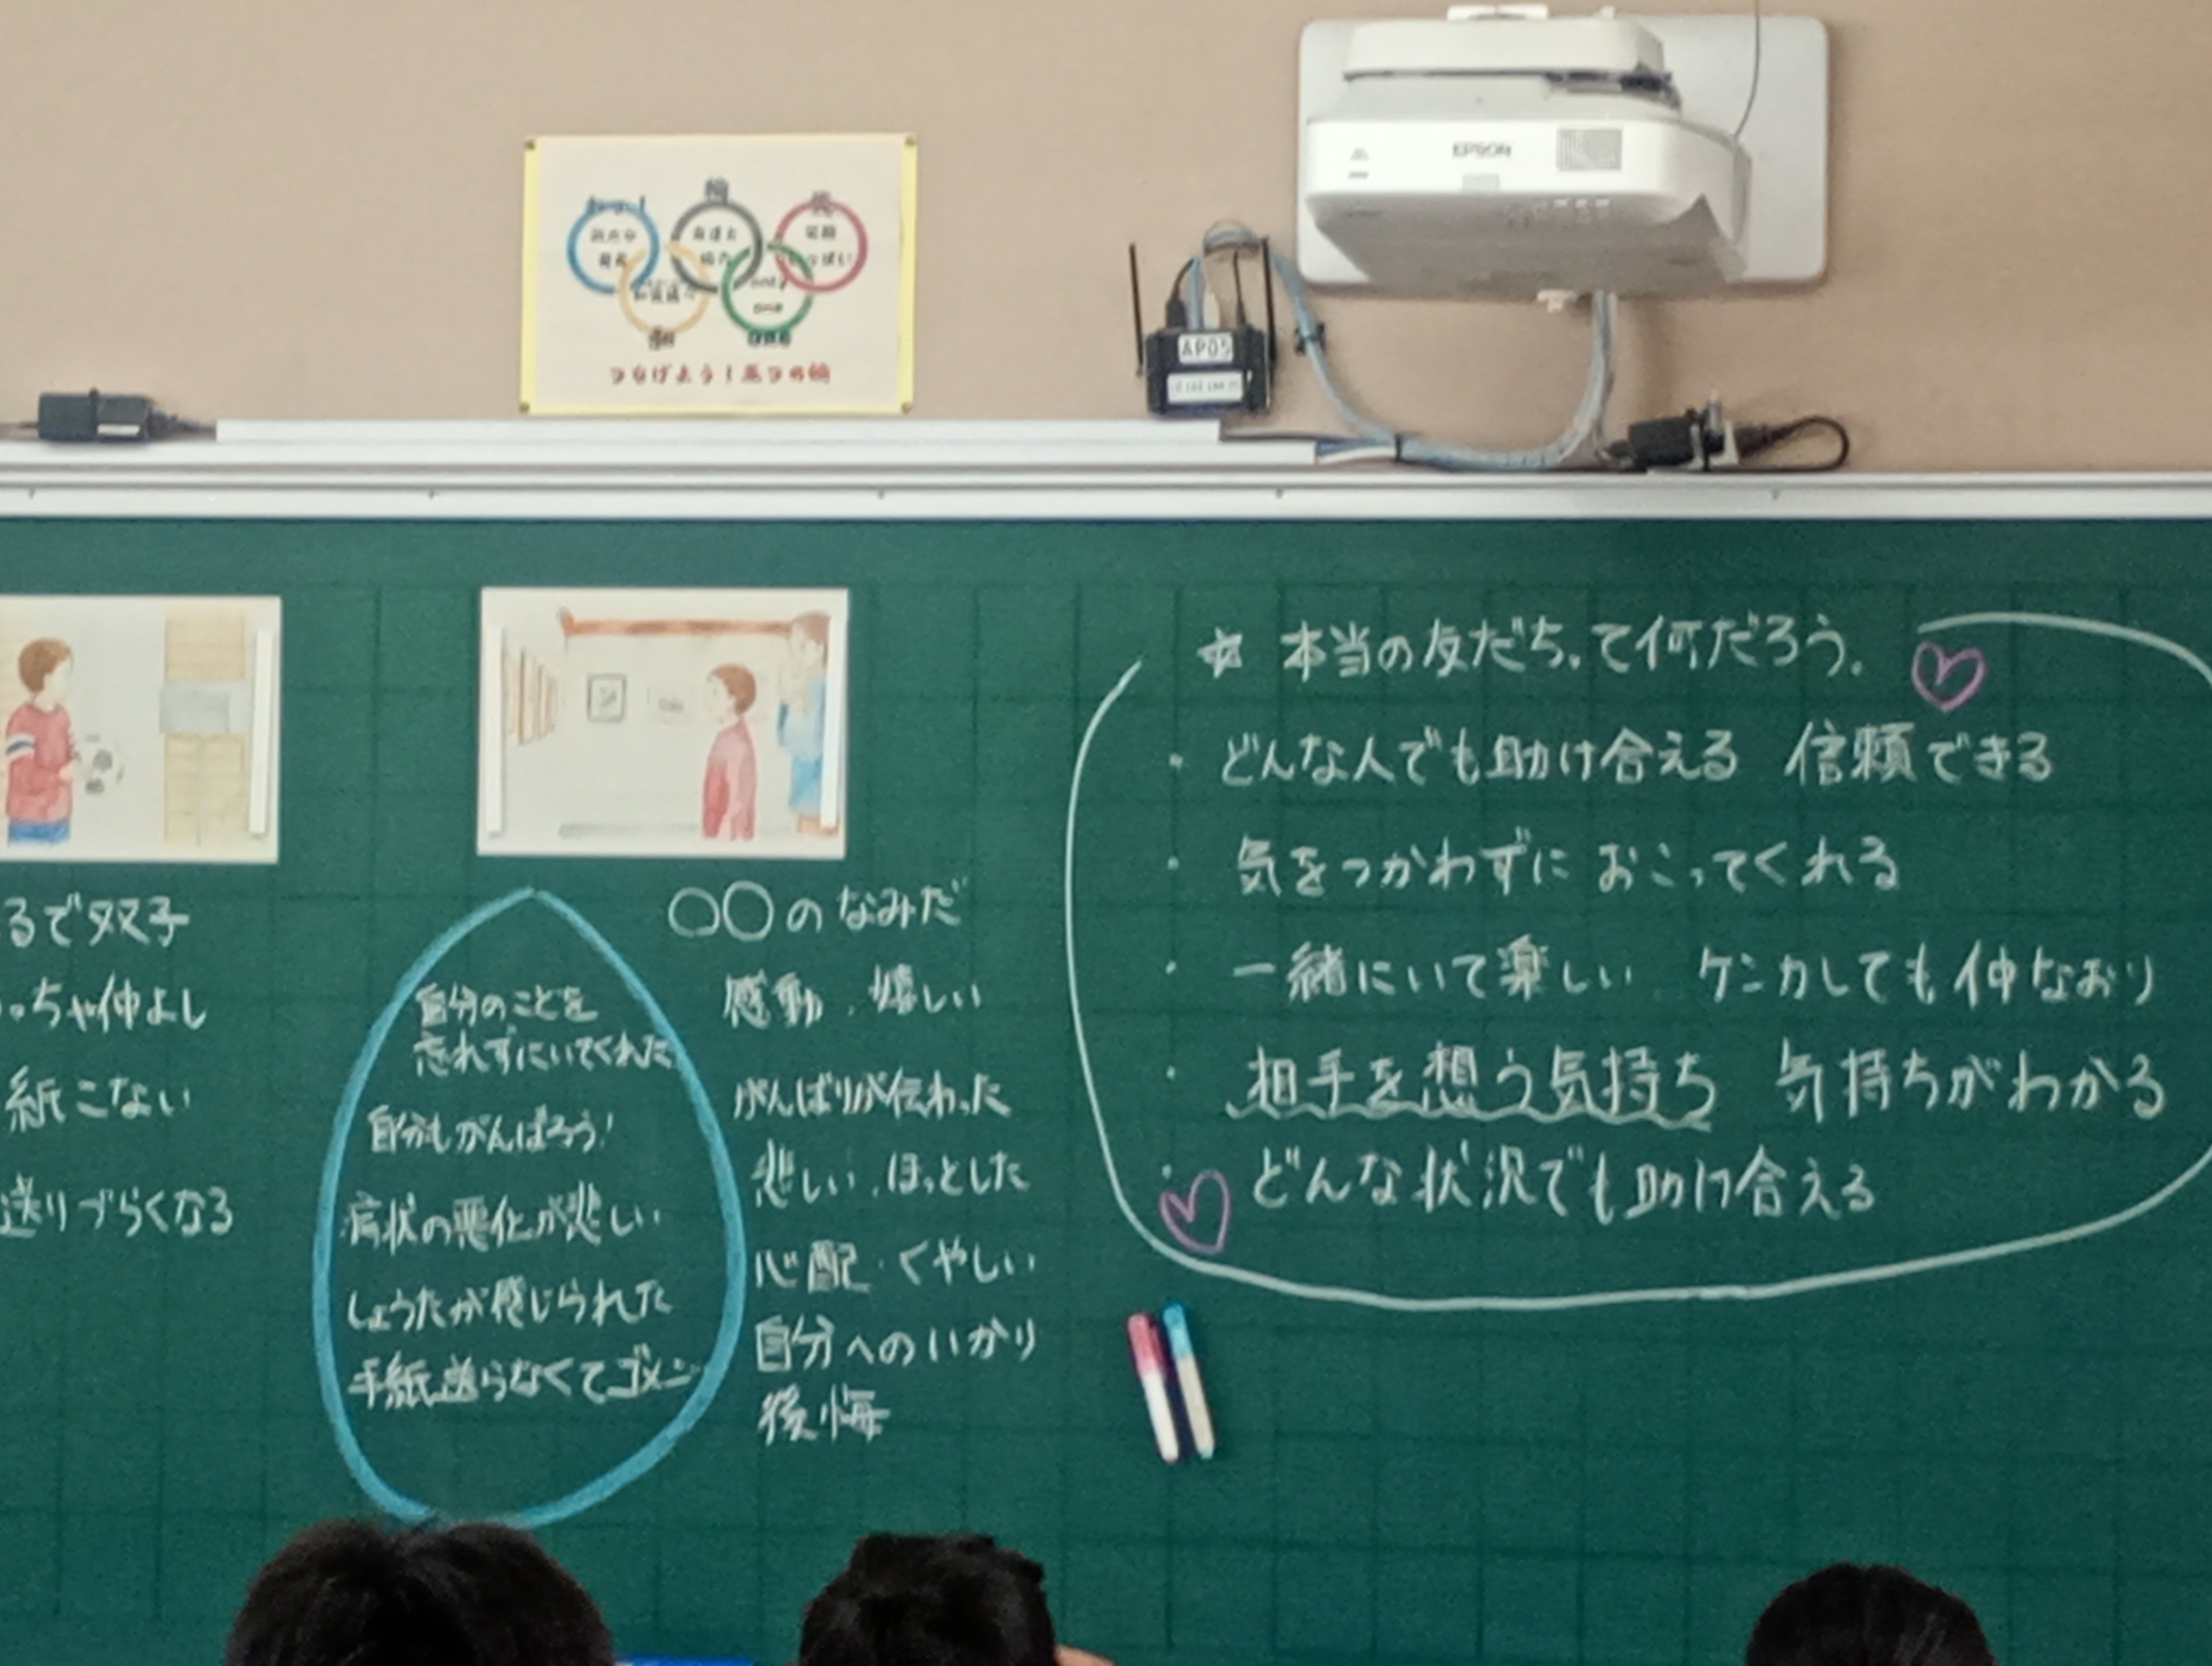 EPSON
AP05
笑顔
いっぱい
only
one
つなげよう！五つの輪
るで双子
っちゃ仲よし
紙こない
送りづらくなる
自分のことを
忘れずにいてくれた
自分もがんばろう！
病状の悪化が悲しい
しょうたが感じられた
手紙送らなくてゴメン
○○のなみだ
感動、嬉しい
がんばりが伝わった
悲しい、ほっとした
心配・くやしい
自分へのいかり
後悔
☆ 本当の友だちって何だろう。
・どんな人でも助け合える 信頼できる
・気をつかわずに おこってくれる
・一緒にいて楽しい ケンカしても仲なおり
・相手を想う気持ち 気持ちがわかる
・どんな状況でも助け合える